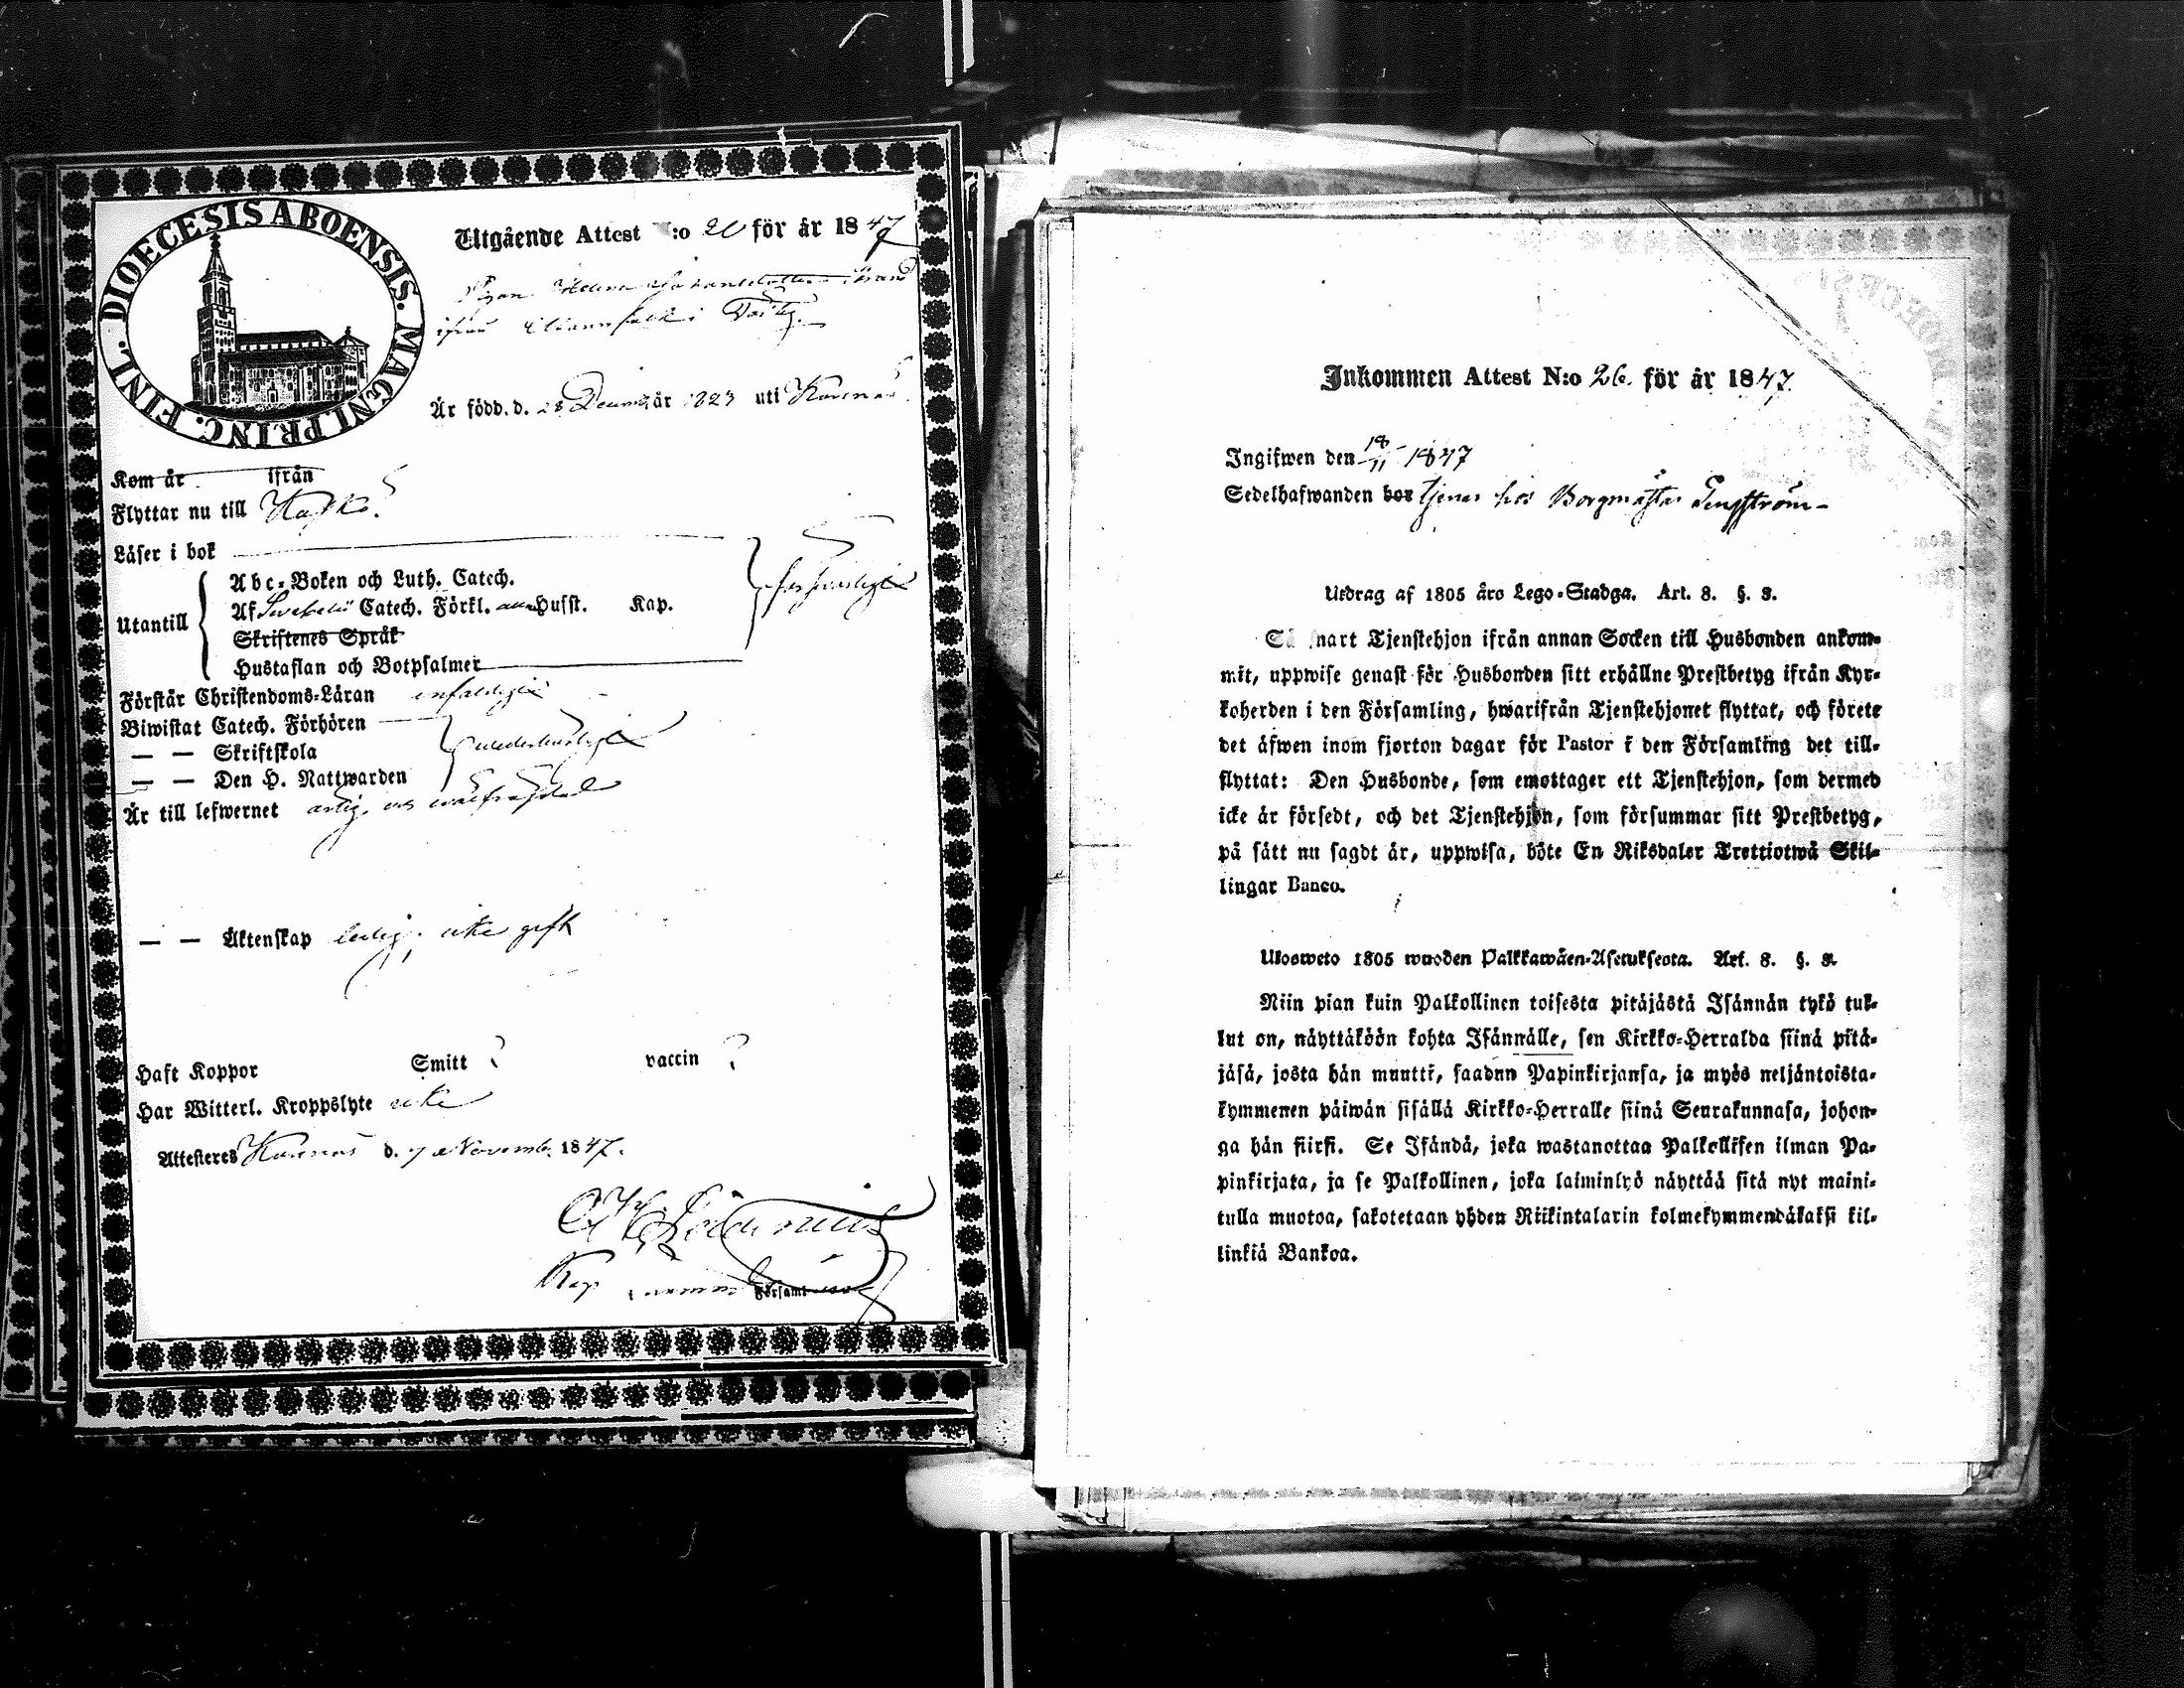 DIOECESIS ABOENSIS. MAGNI PRINC. FINL.
Utgående Attest N:o 20 för år 1847
Pigan Helena
ifrån i
Är född. d. 28 Decemb. år 1823 uti
Kom år ifrån
Flyttar nu till
Läser i bok
Utantill
Abc-Boken och Luth. Catech.
Af Svebelii Catech. Förkl. Husst. Kap.
Skriftenes Språk
Hustaflan och Botpsalmer
försvarligt
Förstår Christendoms-Läran enfaldigt
Biwistat Catech. Förhören
— — Skriftskola
— — Den H. Nattwarden
Är till lefwernet ärlig och
— — Äktenskap ledig, icke gift
Haft Koppor Smitt ? vaccin ?
Har Witterl. Kroppslyte icke
Attesteres d. 7 Novemb. 1847.
Kap. Församl.
Inkommen Attest N:o 26. för år 1847.
Ingifwen den 18/11 1847
Sedelhafwanden bor tjenar hos Borgmästar Tengström
Utdrag af 1805 års Lego-Stadga. Art. 8. §. 8.
Så snart Tjenstehjon ifrån annan Socken till Husbonden ankom-
mit, uppwise genast för Husbonden sitt erhållne Prestbetyg ifrån Kyr-
koherden i den Församling, hwarifrån Tjenstehjonet flyttat, och förete
det äfwen inom fjorton dagar för Pastor i den Församling det till-
flyttat: Den Husbonde, som emottager ett Tjenstehjon, som dermed
icke är försedt, och det Tjenstehjon, som försummar sitt Prestbetyg,
på sätt nu sagdt är, uppwisa, böte En Riksdaler Trettiotwå Skil-
lingar Banco.
Ulosweto 1805 wuoden Palkkawäen-Asetuksesta. Art. 8. §. 8.
Niin pian kuin Palkollinen toisesta pitäjästä Isännän tykö tul-
lut on, näyttäköön kohta Isännälle, sen Kirkko-Herralda siinä pitä-
jäsä, josta hän muutti, saadun Papinkirjansa, ja myös neljäntoista-
kymmenen päiwän sisällä Kirkko-Herralle siinä Seurakunnasa, johon-
ga hän siirsi. Se Isändä, joka wastanottaa Palkollisen ilman Pa-
pinkirjata, ja se Palkollinen, joka laiminlyö näyttää sitä nyt maini-
tulla muotoa, sakotetaan yhden Riikintalarin kolmekymmendäkaksi kil-
linkiä Bankoa.